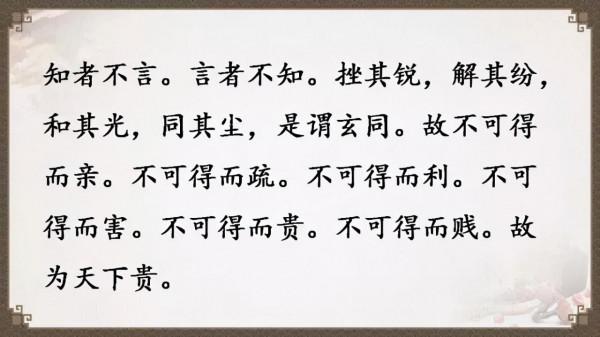 知者不言。言者不知。挫其锐，解其纷，
和其光，同其尘，是谓玄同。故不可得
而亲。不可得而疏。不可得而利。不可
得而害。不可得而贵。不可得而贱。故
为天下贵。